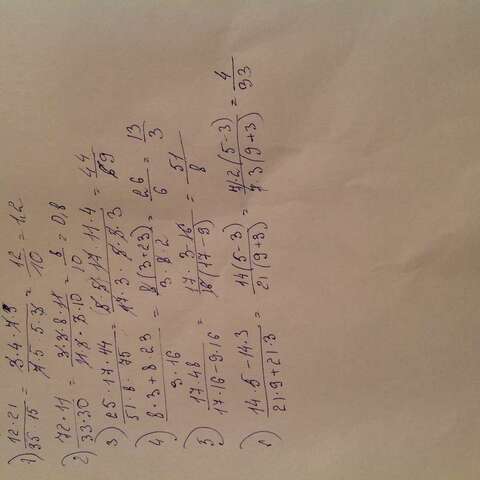 1) 12·21/35·15 = 3·4·7·3/7·5·5·3 = 12/10 = 1,2
2) 72·11/33·30 = 3·3·8·11/11·3·10 = 8/10 = 0,8
3) 25·17·44/51·8·75 = 5·5·17·11·4/17·3· = 44/69
4) 8·3+8·23/3·16 = 8(3+23)/3·8·2 = 26/6 = 13/3
5) 17·48/17·16-9·16 = 17·3·16/16(17-9) = 51/8
6) 14·5-14·3/21·9+21·3 = 14(5-3)/21(9+3) = 7·2(5-3)/7·3(9+3) = 4/33